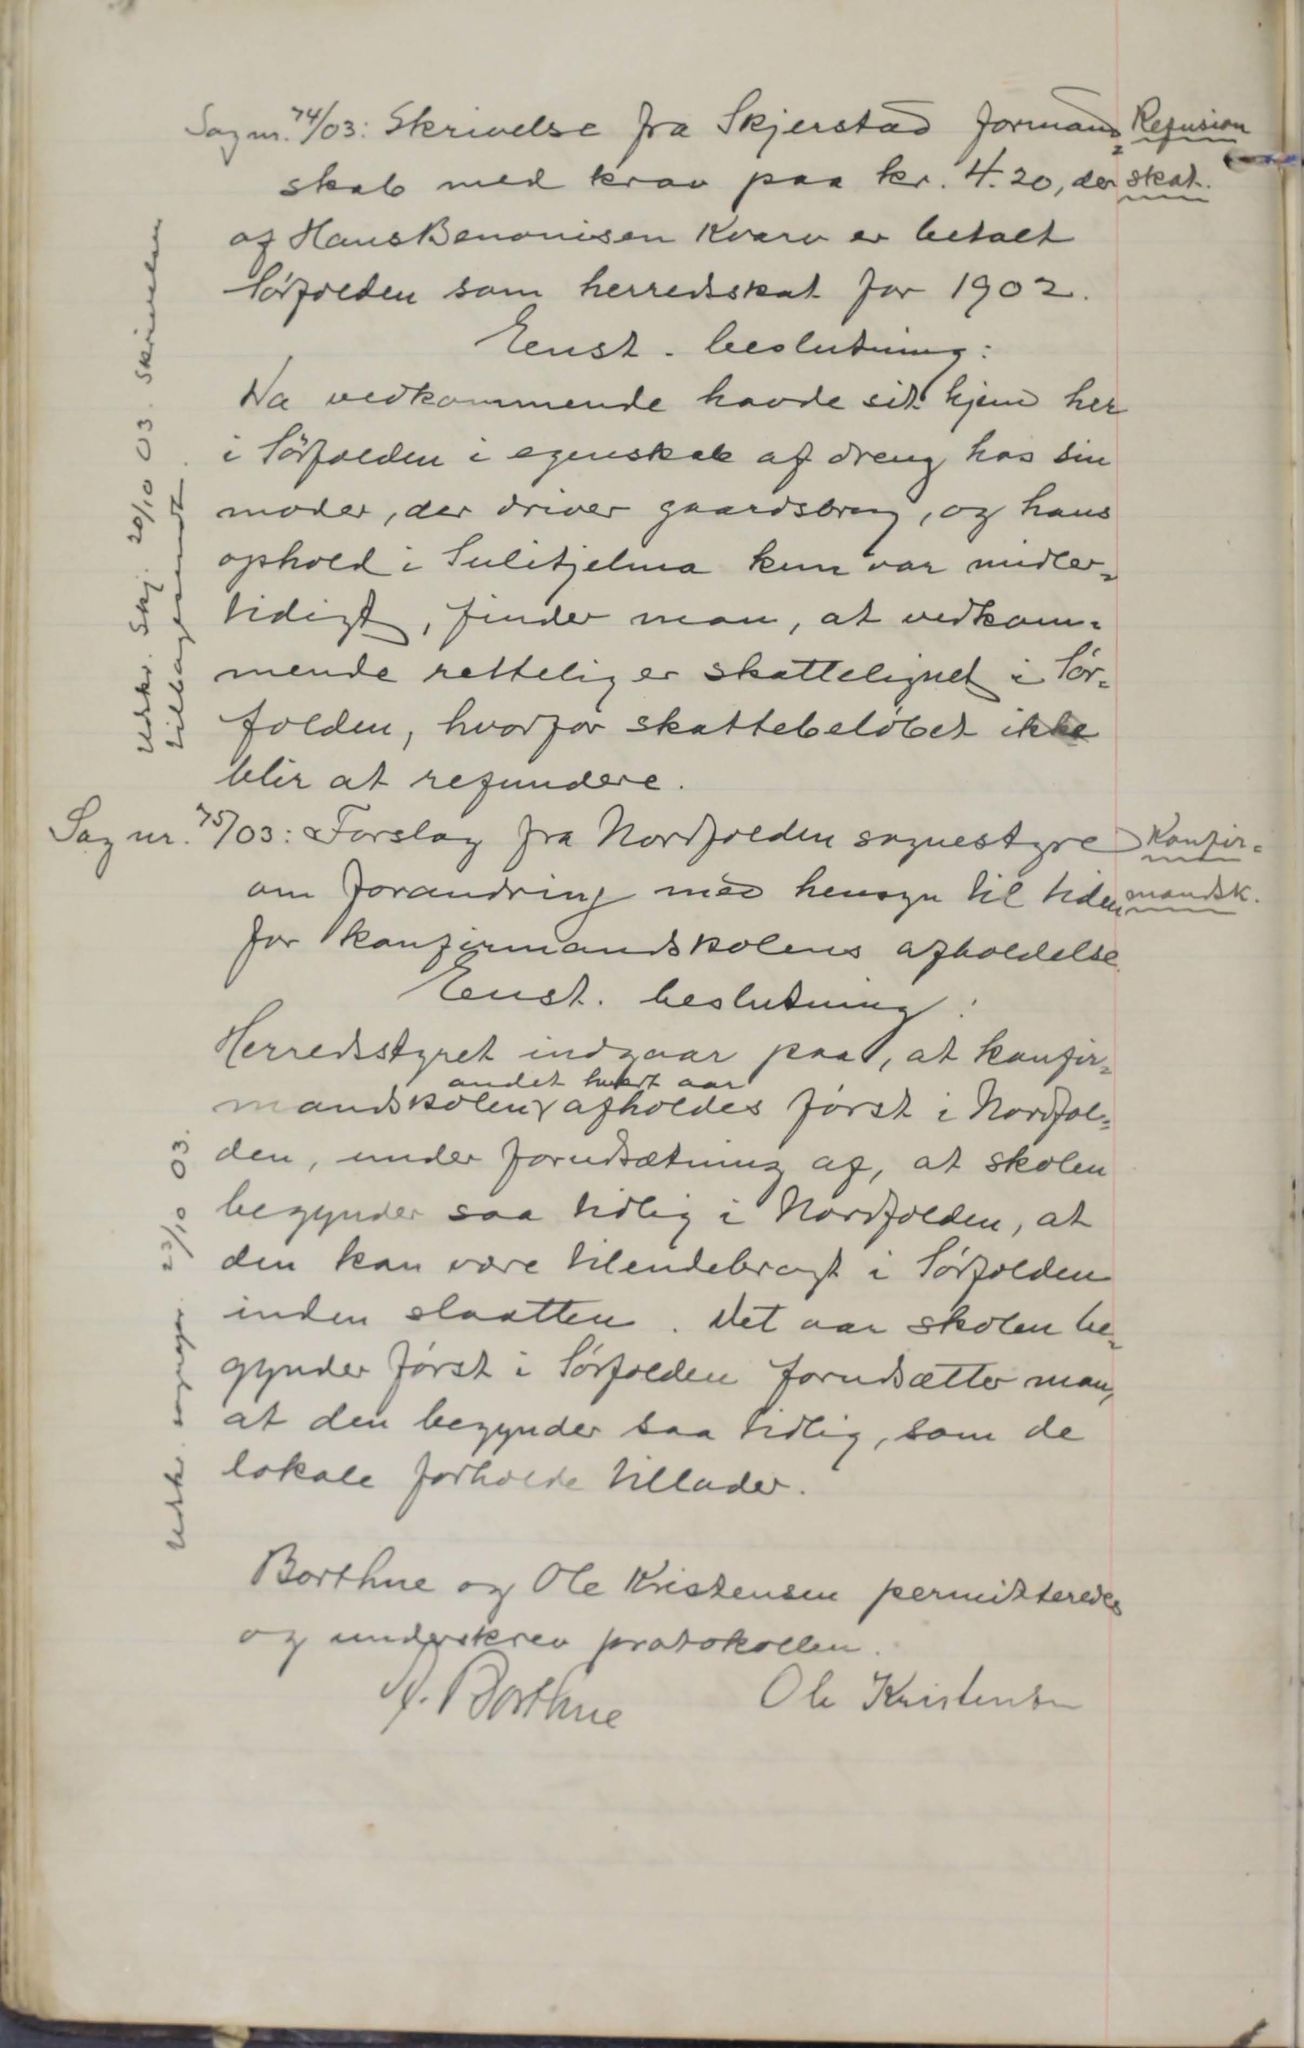 Sag nr. 74/03: Skrivelse fra Skjerstad formand-
Refusion
skab med krav paa kr. 4.20, der
skat.
af Hans Benonisen Kvarv er betalt
Sörfolden som herredsskat for 1902.
Enst. beslutning:
Da vedkommende havde sit hjem her
i Sörfolden i egenskab af dreng hos sin
moder, der driver gaardsbrug, og hans
ophold i Sulitjelma kun var midler-
tidigt, finder man, at vedkom-
mende rettelig er skattelignet i Sör-
folden, hvorfor skattebelöbet ikke
blir at refundere.
Udskr. Skj. 20/10 03. Skrivelsen
tilbagesendt.
Sag nr. 75/03: Forslag fra Nordfolden sognestyre
Konfir-
om forandring med hensyn til tiden
mandsk.
for konfirmandskolens afholdelse.
Enst. beslutning:
Herredsstyret indgaar paa, at konfir-
andet hvert aar
mandskolen afholdes först i Nordfol-
den, under forudsætning af, at skolen
begynder saa tidlig i Nordfolden, at
den kan være tilendebragt i Sörfolden
inden slaatten. Det aar skolen be-
gynder först i Sörfolden forudsætter man,
at den begynder saa tidlig, som de
lokale forholde tillader.
Udskr. 23/10 03.
Borthne og Ole Kristensen permitteredes
og underskrev protokollen.
A. Borthne
Ole Kristensen